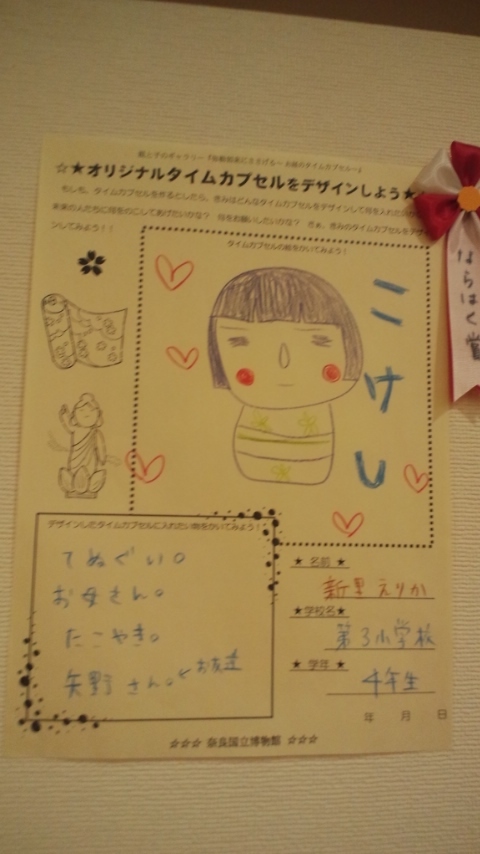 ☆★オリジナルタイムカプセルをデザインしよう★
もしも、タイムカプセルを作るとしたら、きみはどんなタイムカプセルをデザインして何を入れた
未来の人たちに何をのこしてあげたいかな？ 何をお願いしたいかな？ さぁ、きみのタイムカプセルをデザ
ンしてみよう！！
タイムカプセルの絵をかいてみよう！
こけし
ならはく賞
デザインしたタイムカプセルに入れたい物をかいてみよう！
てぬぐい。
お母さん。
たこやき。
矢野さん。←お友達
★ 名前 ★
新里えりか
★学校名★
第3小学校
★ 学年 ★
4年生
年 月 日
☆☆☆ 奈良国立博物館 ☆☆☆